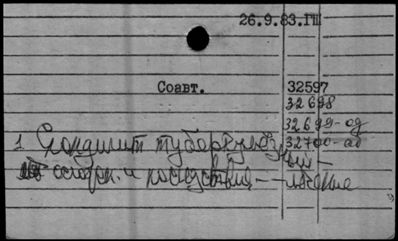 26.9.83.ГПБ
Соавт. 32597
32698
32699-од
32700-аб
1 Спондилит туберкулезный –
осложн. и последствия – лечение